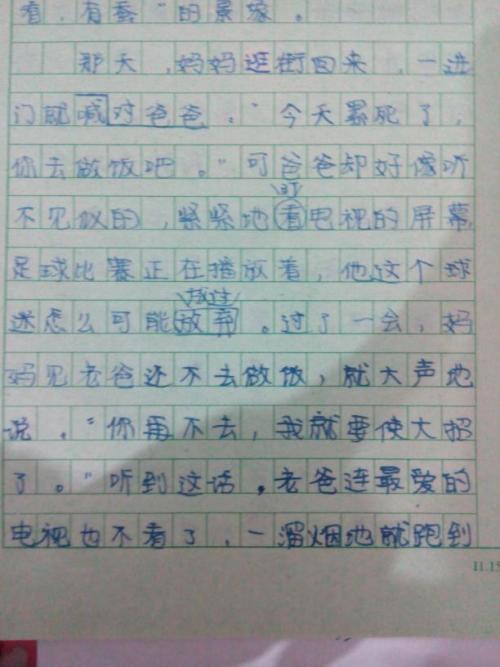 "的景象。
那天，妈妈逛街回来，一进
门就喊对爸爸，"今天累死了，
你去做饭吧。"可爸爸却好像听
盯
不见似的，紧紧地看电视的屏幕，
足球比赛正在播放着，他这个球
迷怎么可能放弃。过了一会，妈
妈见老爸还不去做饭，就大声地
说，"你再不去，我就要使大招
了。"听到这话，老爸连最爱的
电视也不看了，一溜烟地就跑到
11.15